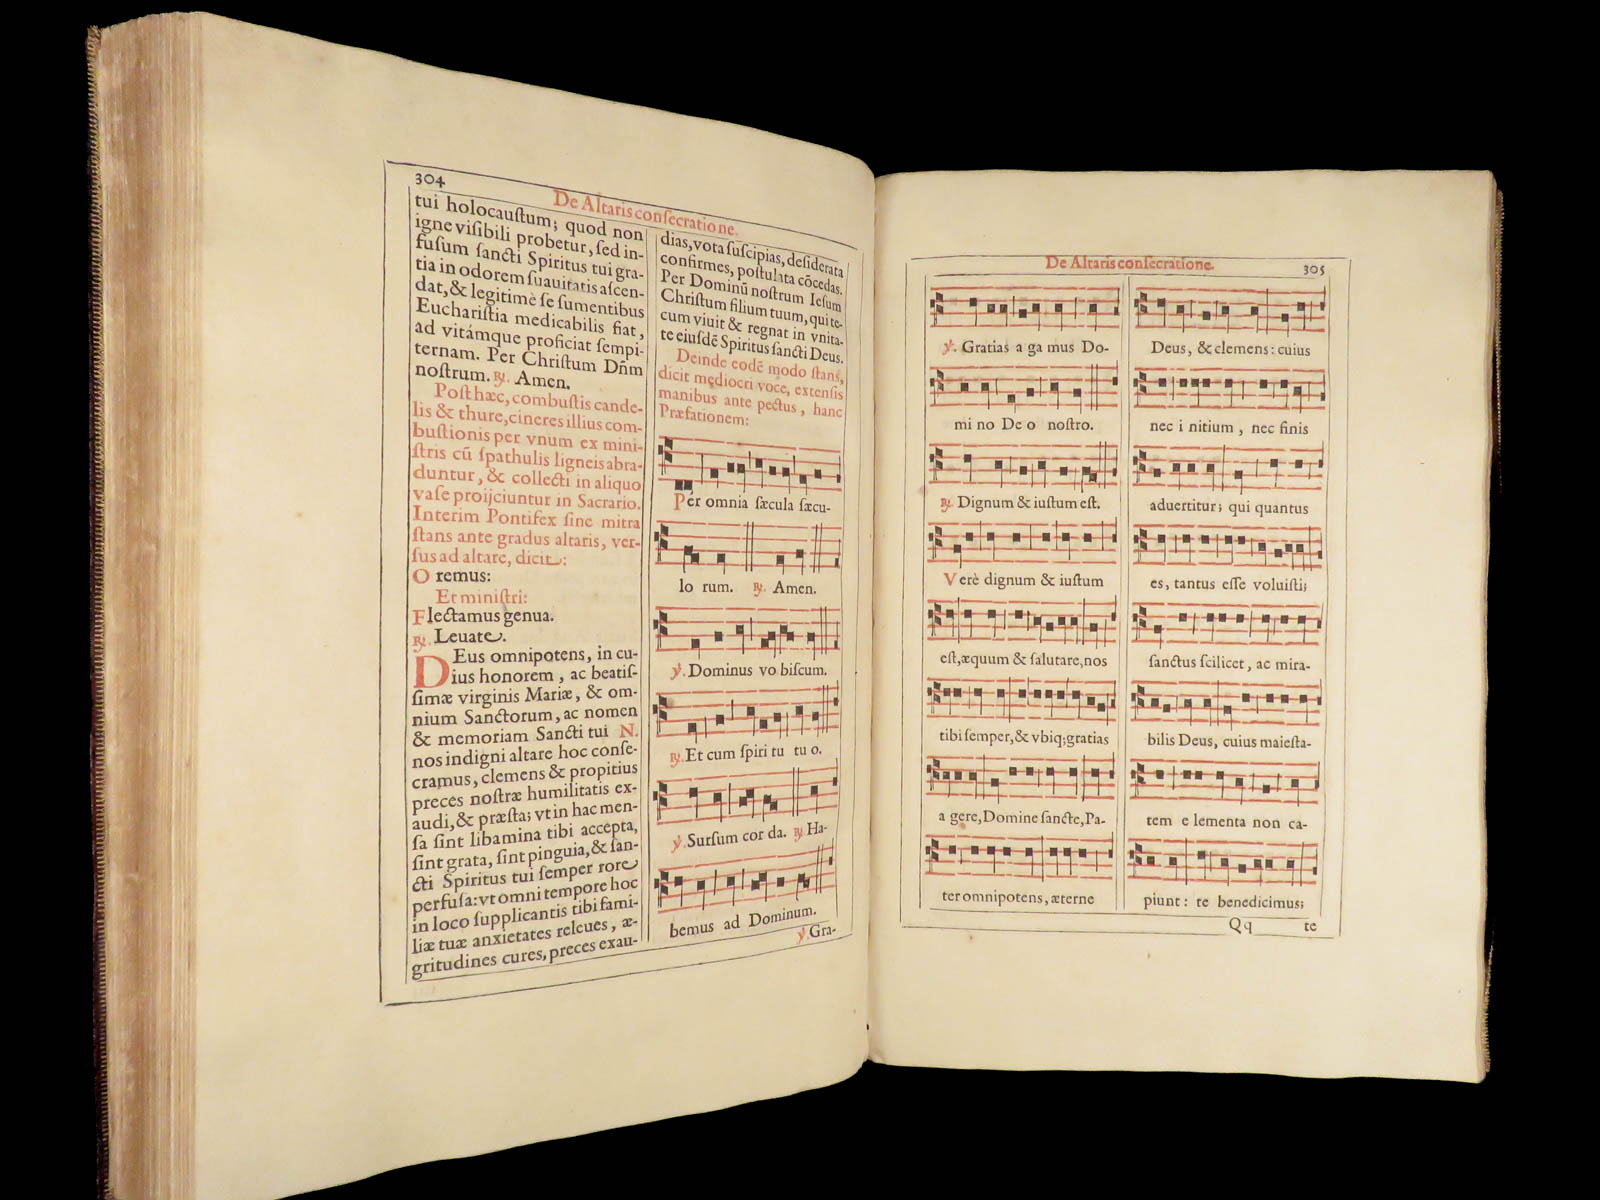 304
De Altaris conſecratione.
tui holocauſtum; quod non
igne viſibili probetur, ſed in-
fuſum ſancti Spiritus tui gra-
tia in odorem ſuauitatis aſcen-
dat, & legitimè ſe ſumentibus
Euchariſtia medicabilis fiat,
ad vitámque proficiat ſempi-
ternam. Per Chriſtum Dñm
noſtrum. ℟. Amen.
Poſt hæc, combuſtis cande-
lis & thure, cineres illius com-
buſtionis per vnum ex mini-
ſtris cũ ſpathulis ligneis abra-
duntur, & collecti in aliquo
vaſe proijciuntur in Sacrario.
Interim Pontifex ſine mitra
ſtans ante gradus altaris, ver-
ſus ad altare, dicit:
O remus:
Et miniſtri:
Flectamus genua.
℟. Leuate.
DEus omnipotens, in cu-
ius honorem, ac beatiſ-
ſimæ virginis Mariæ, & om-
nium Sanctorum, ac nomen
& memoriam Sancti tui N.
nos indigni altare hoc conſe-
cramus, clemens & propitius
preces noſtræ humilitatis ex-
audi, & præſta; vt in hac men-
ſa ſint libamina tibi accepta,
ſint grata, ſint pinguia, & ſan-
cti Spiritus tui ſemper rore
perfuſa: vt omni tempore hoc
in loco ſupplicantis tibi fami-
liæ tuæ anxietates releues, æ-
gritudines cures, preces exau-
dias, vota ſuſcipias, deſiderata
confirmes, poſtulata cõcedas.
Per Dominũ noſtrum Ieſum
Chriſtum filium tuum, qui te-
cum viuit & regnat in vnita-
te eiuſdẽ Spiritus ſancti Deus.
Deinde eodẽ modo ſtans,
dicit mediocri voce, extenſis
manibus ante pectus, hanc
Præfationem:
Per omnia ſæcula ſæcu-
lo rum. ℟. Amen.
℣. Dominus vo biſcum.
℟. Et cum ſpiri tu tu o.
℣. Surſum cor da. ℟. Ha-
bemus ad Dominum.
℣. Gra-
De Altaris conſecratione.
305
℣. Gratias a ga mus Do-
mi no De o noſtro.
℟. Dignum & iuſtum eſt.
Verè dignum & iuſtum
eſt, æquum & ſalutare, nos
tibi ſemper, & vbiq; gratias
a gere, Domine ſancte, Pa-
ter omnipotens, æterne
Deus, & clemens: cuius
nec i nitium, nec finis
aduertitur; qui quantus
es, tantus eſſe voluiſti;
ſanctus ſcilicet, ac mira-
bilis Deus, cuius maieſta-
tem e lementa non ca-
piunt: te benedicimus;
Qq
te